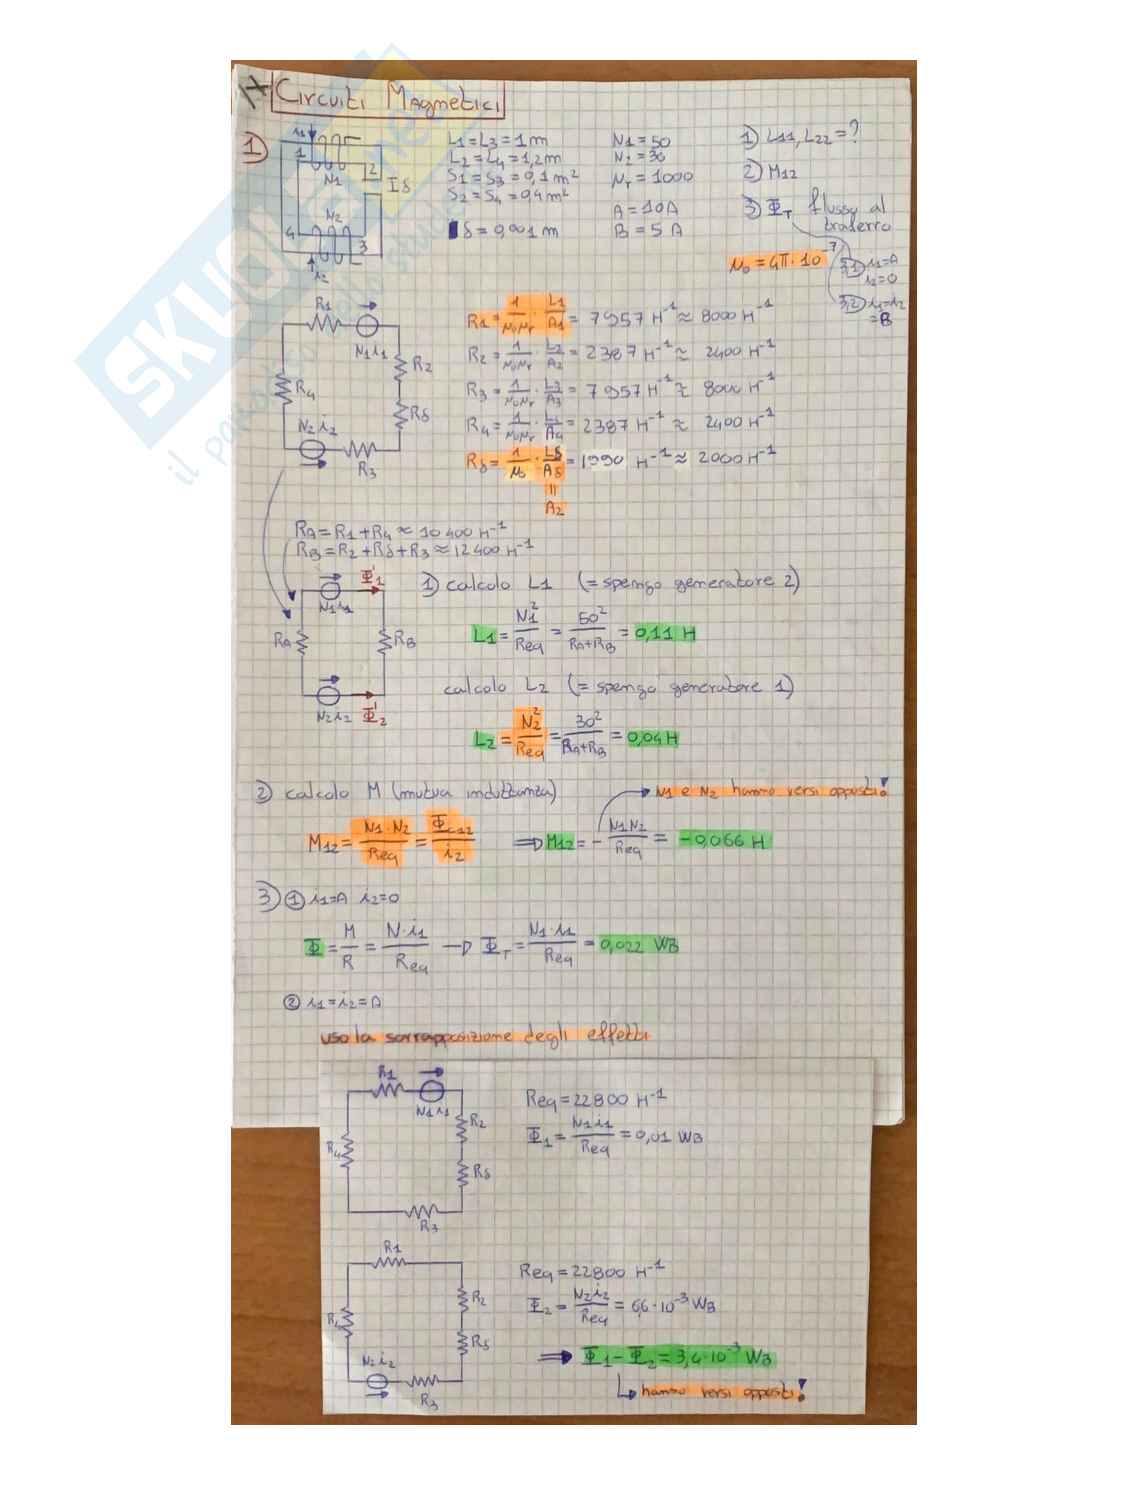 Circuiti Magnetici
1)
L1=L3=1m
L2=L4=1,2m
S1=S3=0,1m²
S2=S4=0,4m²
δ=0,001m
N1=50
N2=30
μr=1000
A=10A
B=5A
1) L11, L22=?
2) M12
3) ΦT flusso al traferro
μ0=4π·10⁻⁷
3,1) i1=A
i2=0
3,2) i1=i2
=B
i1
1
N1
2
δ
N2
4
3
i2
R1
N1i1
R2
R4
Rδ
N2i2
R3
R1=1/μ0μr·L1/A1=7957H⁻¹≈8000H⁻¹
R2=1/μ0μr·L2/A2=2387H⁻¹≈2400H⁻¹
R3=1/μ0μr·L3/A3=7957H⁻¹≈8000H⁻¹
R4=1/μ0μr·L4/A4=2387H⁻¹≈2400H⁻¹
Rδ=1/μ0·Lδ/Aδ=1990 H⁻¹≈2000H⁻¹
=
A2
RA=R1+R4≈10400H⁻¹
RB=R2+Rδ+R3≈12400H⁻¹
Φ'1
N1i1
RA
RB
N2i2
Φ'2
1) calcolo L1 (=spengo generatore 2)
L1=N1²/Req=50²/RA+RB=0,11H
calcolo L2 (=spengo generatore 1)
L2=N2²/Req=30²/RA+RB=0,04H
2) calcolo M (mutua induttanza)
N1 e N2 hanno versi opposti!
M12=N1·N2/Req=Φc12/i2 ⇒ M12=-N1N2/Req=-0,066H
3) ① i1=A i2=0
Φ=M/R=N·i1/Req → ΦT=N1·i1/Req=0,022 WB
② i1=i2=A
uso la sovrapposizione degli effetti
R1
N1i1
R2
R4
Rδ
R3
Req=22800 H⁻¹
Φ1=N1i1/Req=0,01 WB
R1
R2
R4
Rδ
N2i2
R3
Req=22800 H⁻¹
Φ2=N2i2/Req=6,6·10⁻³WB
⇒ Φ1-Φ2=3,4·10⁻³WB
hanno versi opposti!
SKUOLA.net
il paradiso dello studente